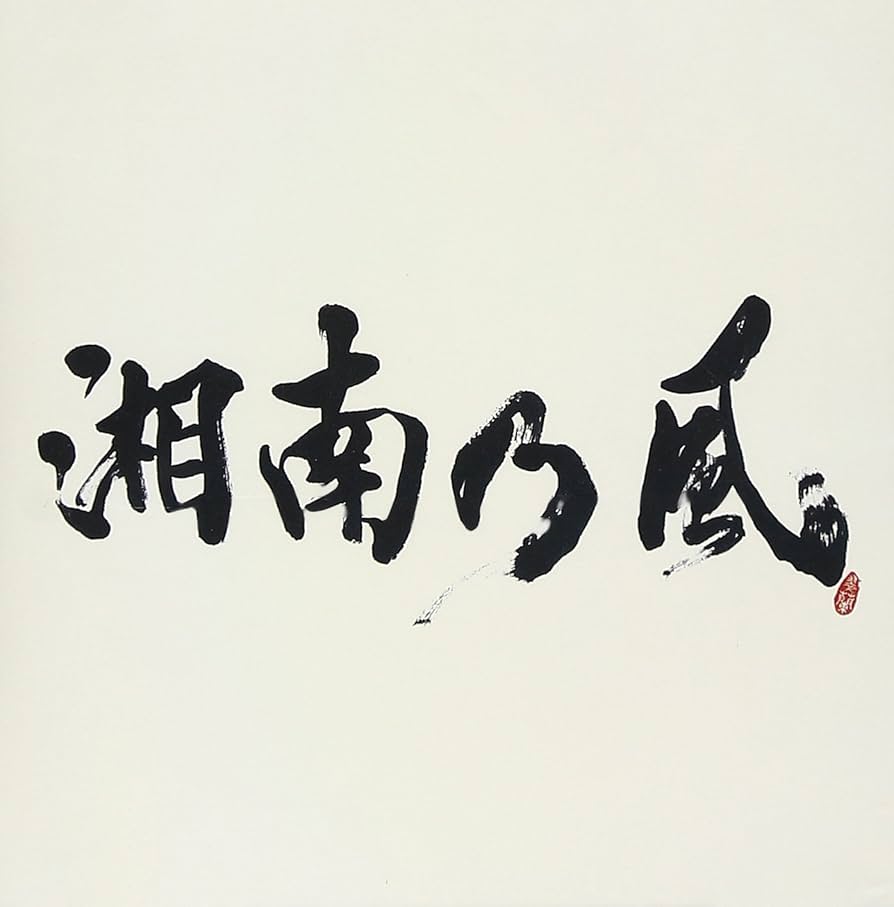 湘南乃風